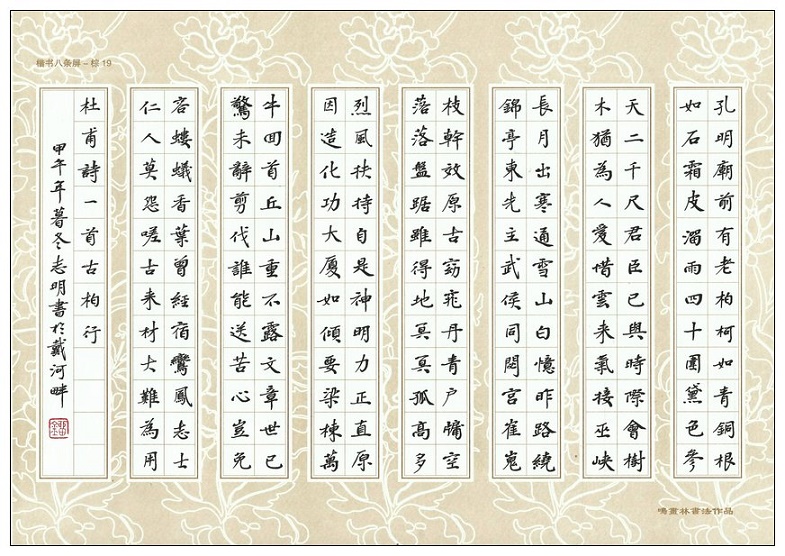 楷书八条屏－棕19
孔明廟前有老柏柯如青銅根
如石霜皮溜雨四十圍黛色參
天二千尺君臣已與時際會樹
木猶為人愛惜雲來氣接巫峽
長月出寒通雪山白憶昨路繞
錦亭東先主武侯同閟宮崔嵬
枝幹效原古窈窕丹青戶牖空
落落盤踞雖得地冥冥孤高多
烈風扶持自是神明力正直原
因造化功大廈如傾要梁棟萬
牛回首丘山重不露文章世已
驚未辭剪伐誰能送苦心豈免
容螻蟻香葉曾經宿鸞鳳志士
仁人莫怨嗟古來材大難為用
杜甫詩一首古柏行
甲午年暮冬志明書於戴河畔
林書法作品